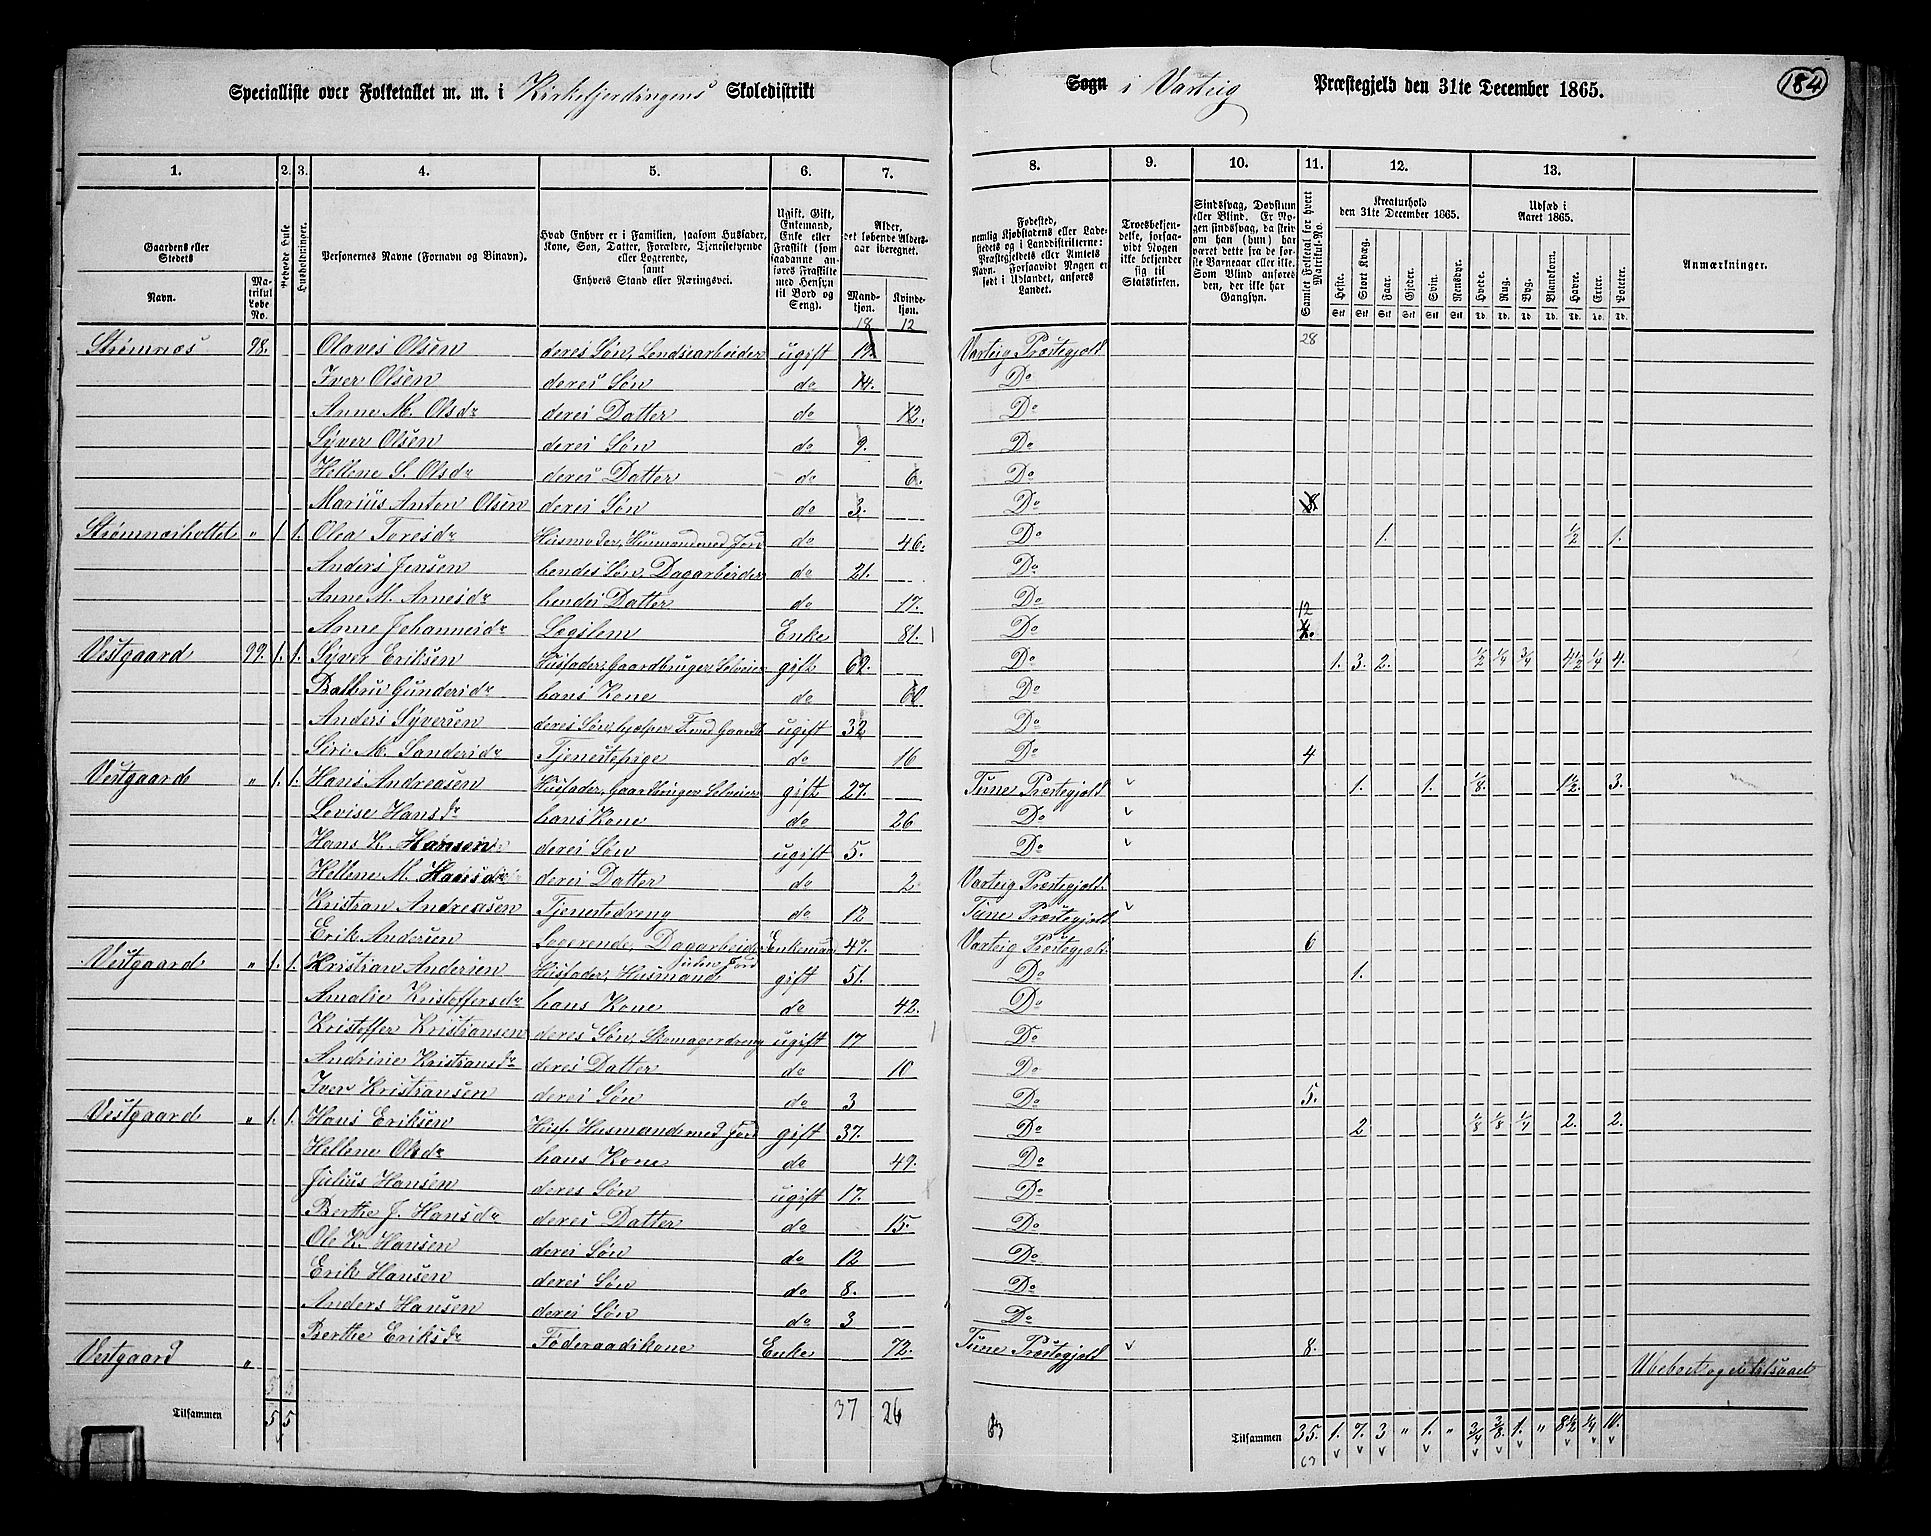 184
Specialliste over Folketallet m. m. i Kirkefjerdingens Skoledistrikt Sogn i Varteig Præstegjeld den 31te December 1865.
1. 2. 3. 4. 5. 6. 7. 8. 9. 10. 11. 12. 13.
Gaardens eller Stedets Navn. Matrikul Løbe No. Beboede Huse Husholdninger. Personernes Navne (Fornavn og Binavn). Hvad Enhver er i Familien, saasom Husfader, Kone, Søn, Datter, Forældre, Tjenestetyende eller Logerende, samt Enhvers Stand eller Næringsvei. Ugift, Gift, Enkemand, Enke eller Fraskilt (som saadanne anføres Fraskilte med Hensyn til Bord og Seng). Alder, det løbende Aldersaar iberegnet. Mandkjøn. Kvindekjøn. Fødested, nemlig Kjøbstadens eller Ladestedets og i Landdistrikterne: Præstegjeldets eller Amtets Navn. Forsaavidt Nogen er født i Udlandet, anføres Landet. Troesbekjendelse, forsaavidt Nogen ikke bekjender sig til Statskirken. Sindssvag, Døvstum eller Blind. Er Nogen sindssvag, da skriv om han (hun) har været dette fra de første Barneaar eller ikke. Som Blind anføres den, der ikke har Gangsyn. Samlet Folketal for hvert Matrikul-No. Kreaturhold den 31te December 1865. Heste. Stort Kvæg. Faar. Gjeder. Svin. Rensdyr. Udsæd i Aaret 1865. Hvede. Rug. Byg. Blandkorn. Havre. Erter. Poteter. Anmærkninger.
18 12 28
Strømnæs 98. Olaves Olsen deres Søn, Lendsiarbeider ugift 19. Varteig Præstegjeld
Iver Olsen deres Søn do 14. Do
Anne M. Olsdr deres Datter do 12. Do
Syver Olsen deres Søn do 9. Do
Hellene S. Olsdr deres Datter do 6. Do
Marius Anton Olsen deres Søn do 3. Do 8
Strømnæsholtet " 1. 1. Olea Toresdr Husmoder, Husmand med Jord do 46. Do 1. ½ 1.
Anders Jensen hendes Søn, Dagarbeider do 21. Do
Anne M. Arnesdr hendes Datter do 17. Do
Anne Johannesdr Logslem Enke 81. Do 12 4.
Vestgaard 99. 1. 1. Syver Eriksen Husfader, Gaardbruger Selveier gift 62. Do 1. 3. 2. ½ ¼ ¾ 4½ ¼ 4.
Gundersdr hans Kone do 60 Do
Anders Syversen deres Søn, hjælper F. med Gaardb ugift 32 Do
Siri M. Sandersdr Tjenestepige do 16 Do 4
Vestgaard " 1. 1. Hans Andreasen Husfader, Gaardbruger Selveier gift 27. Tune Præstegjeld 1. 1. ⅛ 1½ 3.
Lovise Hansdr hans Kone do 26 Do
Hans K. Hansen deres Søn ugift 5. Do
Hellene M. Hansdr deres Datter do 2 Varteig Præstegjeld.
Kristian Andreasen Tjenestedreng do 12 Tune Præstegjeld
Erik Andersen Loverende, Dagarbeider Enkemand 47. Varteig Præstegjeld. 6
Vestgaard " 1. 1. Kristian Andersen Husfader, Husmand uden Jord gift 51. Do 1.
Amalie Kristoffersdr hans Kone do 42. Do
Kristoffer Kristiansen deres Søn, Skomagerdreng ugift 17 Do
Andrine Kristiansdr deres Datter do 10 Do
Iver Kristiansen deres Søn do 3 Do 5.
Vestgaard " 1. 1. Hans Eriksen Husf. Husmand med Jord gift 37. Do 2 ⅛ ⅛ ¼ 2. 2.
Hellene Olsdr hans Kone do 49. Do
Julius Hansen deres Søn ugift 17. Do
Berthe J. Hansdr deres Datter do 15. Do
Ole K. Hansen deres Søn do 12 Do
Erik Hansen deres Søn do 8. Do
Anders Hansen deres Søn do 3 Do
Berthe Eriksdr Føderaadskone Enke 72. Tune Præstegjeld 8.
Vestgaard " Ubeboet og
Tilsammen 5 5 37 26 63 Tilsammen 35. 1. 7. 3 " 1. " ¾ ⅜ 1. " 8½ ¼ 10.